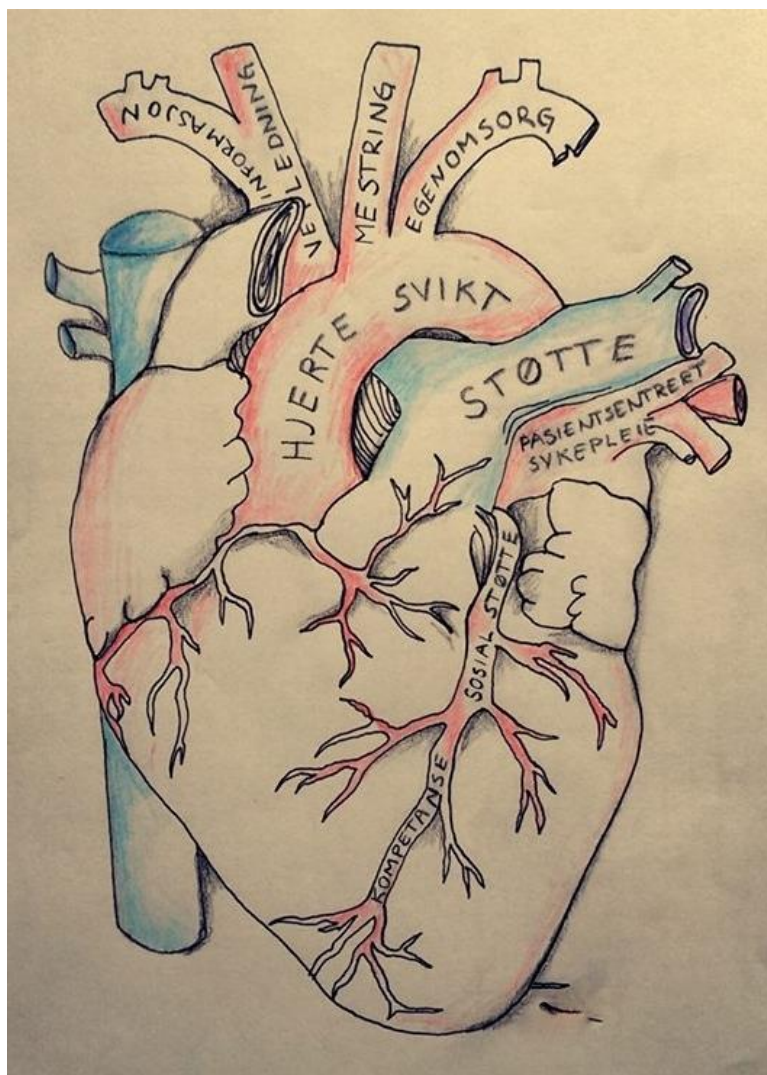 INFORMASJON
VEILEDNING
MESTRING
EGENOMSORG
HJERTE SVIKT
STØTTE
PASIENTSENTRERT
SYKEPLEIE
SOSIAL STØTTE
KOMPETANSE